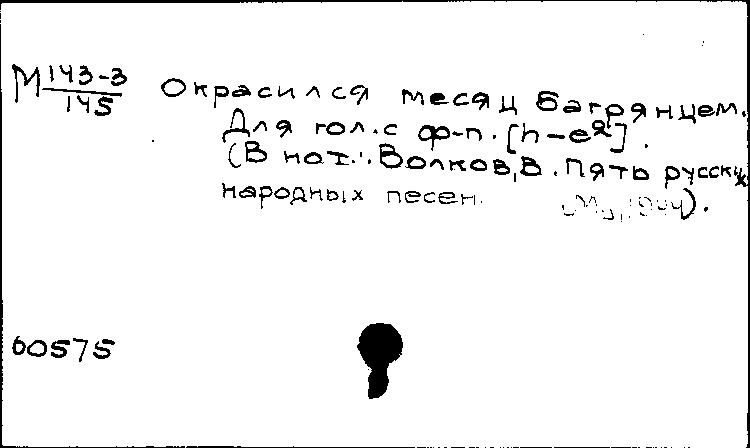 М 143-3
145
Окрасился месяц багрянцем.
Для гол. с ф-п. [h-e²].
(В нот.: Волков, В. Пять русских
народных песен. М., 1944).
60575